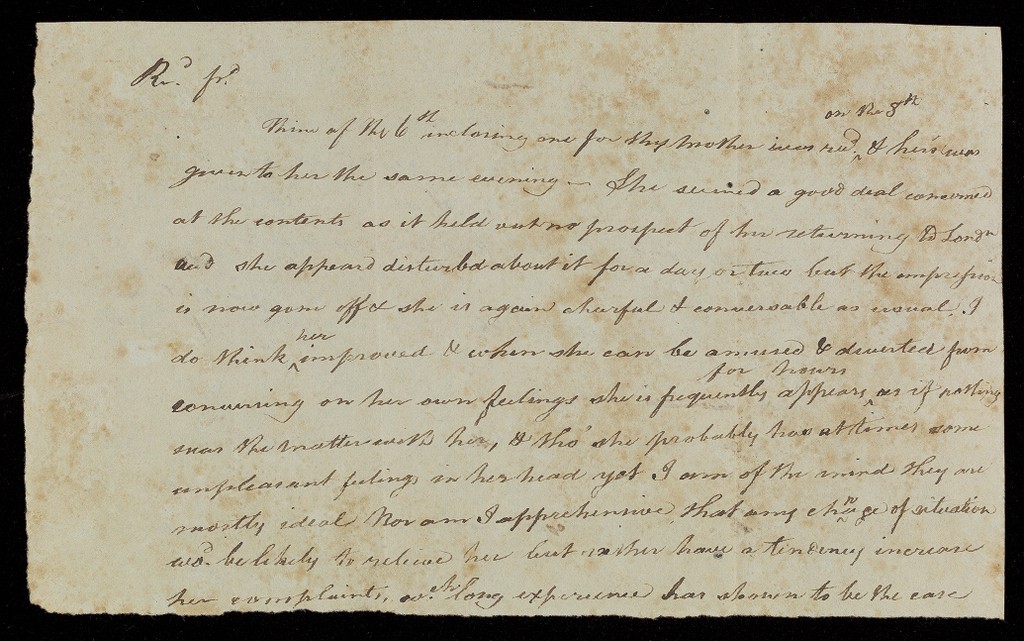 Rd. frd.
on the 8th
Thine of the 6th inclosing one for thy Mother was recd. ^ & her's was
given to her the same evening — She seemed a good deal concerned
at the contents as it held out no prospect of her returning to Londn
and she appeard disturbed about it for a day or two but the impression
is now gone off & she is again chearful & conversable as usual. I
her
do think ^ improved & when she can be amused & diverted from
for hours
conversing on her own feelings she is frequently appears ^ as if nothing
was the matter with her, & tho' she probably has at times some
unpleasant feelings in her head yet I am of the mind they are
mostly ideal Nor am I apprehensive that any change of situation
wd. be likely to relieve her but rather have a tendency increase
her complaints, wch. long experience has shown to be the case